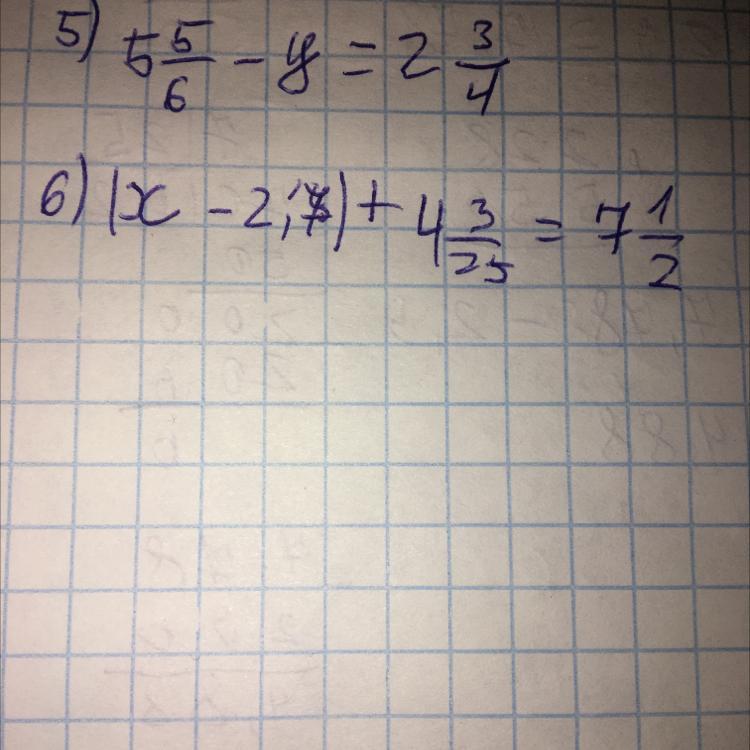 5) 5 5/6 - y = 2 3/4
6) (x - 2,7) + 4 3/25 = 7 1/2